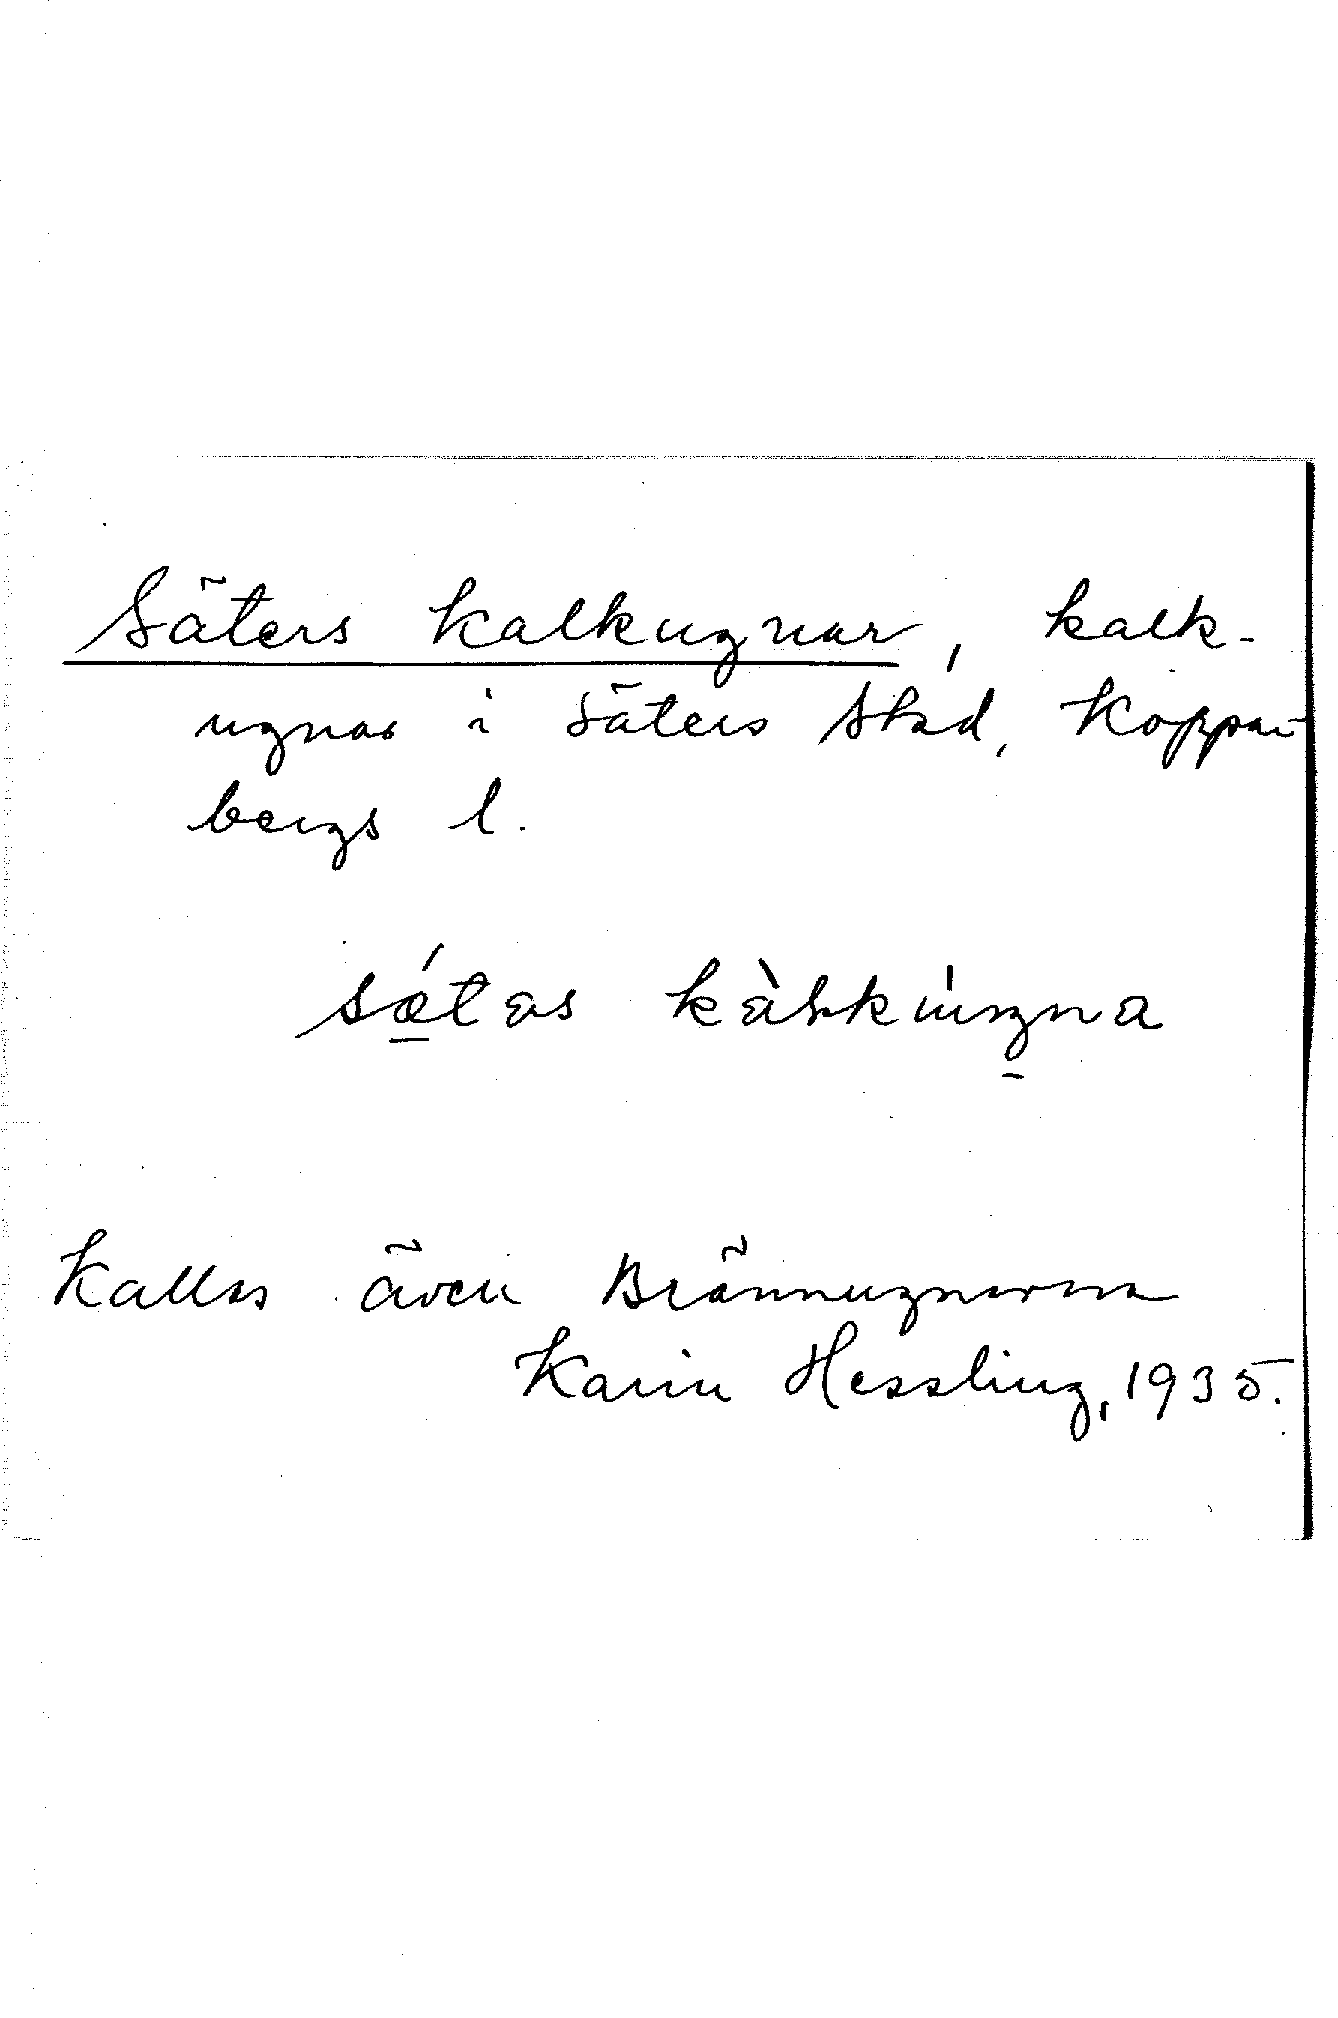 Säters kalkugnar, kalk-
ugnar i Säters stad, Koppar-
bergs l.
Kallas även Brännugnarna
Karin Hessling, 1935.